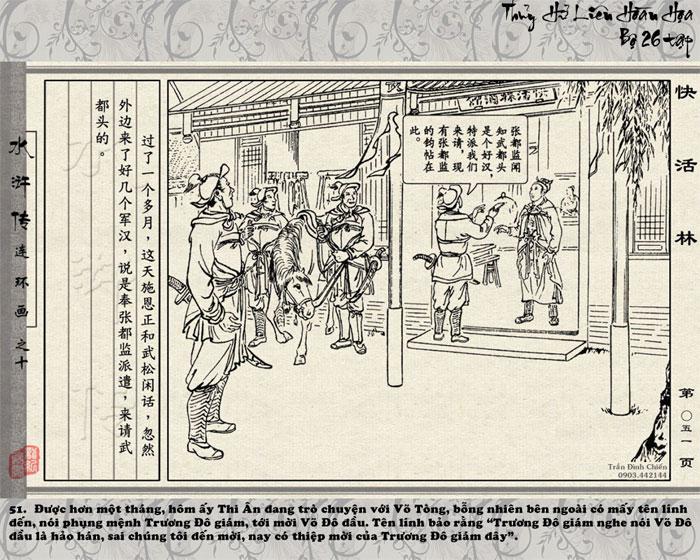 Thủy Hử Liên Hoàn Họa
Bộ 26 tập
快活林
第〇五一页
水浒传连环画之十
过了一个多月，这天施恩正和武松闲话，忽然
外边来了好几个军汉，说是奉张都监派遣，来请武
都头的。
张都监闻
知武都头
是个好汉，
特派我们
来请，现
有张都监
的钧帖在
此。
Trần Đình Chiến
0903.442144
51. Được hơn một tháng, hôm ấy Thi Ân đang trò chuyện với Võ Tòng, bỗng nhiên bên ngoài có mấy tên lính
đến, nói phụng mệnh Trương Đô giám, tới mời Võ Đô đầu. Tên lính bảo rằng “Trương Đô giám nghe nói Võ Đô
đầu là hảo hán, sai chúng tôi đến mời, nay có thiệp mời của Trương Đô giám đây”.